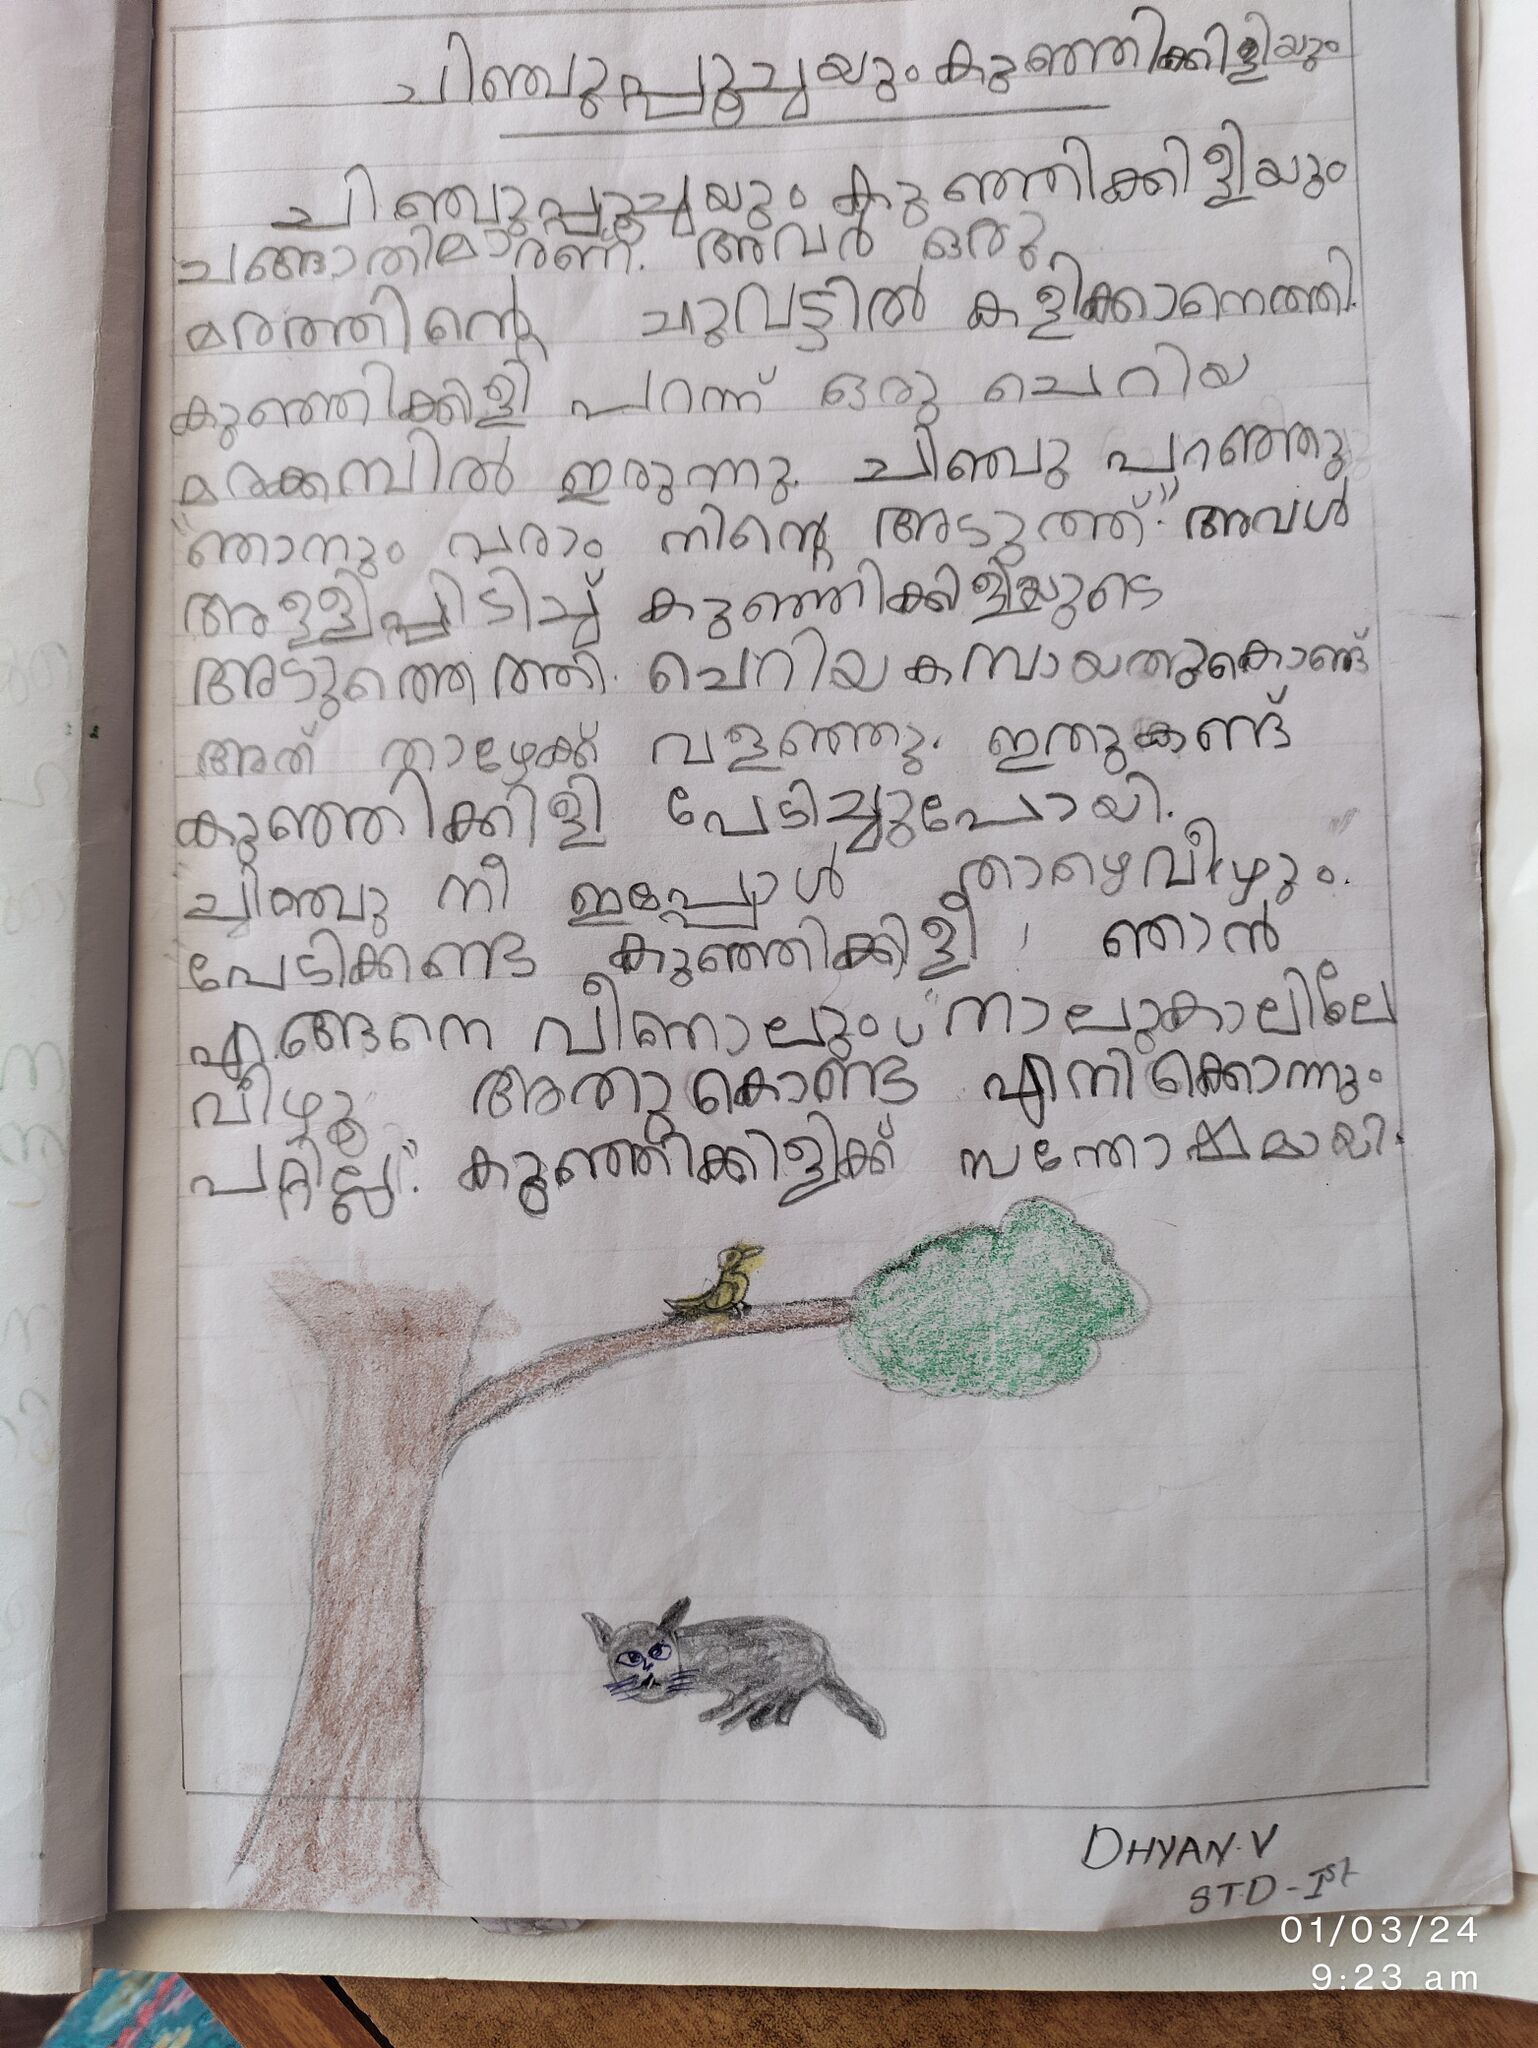 ചിഞ്ചുപ്പൂച്ചയും കുഞ്ഞിക്കിളിയും
ചിഞ്ചുപ്പൂച്ചയും കുഞ്ഞിക്കിളിയും
ചങ്ങാതിമാരണ്. അവർ ഒരു
മരത്തിന്റെ ചുവട്ടിൽ കളിക്കാനെത്തി.
കുഞ്ഞിക്കിളി പറന്ന് ഒരു ചെറിയ
മരക്കമ്പിൽ ഇരുന്നു. ചിഞ്ചു പറഞ്ഞു
"ഞാനും വരാം നിന്റെ അടുത്ത്." അവൾ
അള്ളിപ്പിടിച്ച് കുഞ്ഞിക്കിളിയുടെ
അടുത്തെത്തി. ചെറിയ കമ്പായതുകൊണ്ട്
അത് താഴേക്ക് വളഞ്ഞു. ഇതുകണ്ട്
കുഞ്ഞിക്കിളി പേടിച്ചുപോയി.
"ചിഞ്ചു നീ ഇപ്പോൾ താഴെവീഴും.
"പേടിക്കണ്ട കുഞ്ഞിക്കിളീ! ഞാൻ
എങ്ങനെ വീണാലും "നാലുകാലിലേ
വീഴൂ അതുകൊണ്ട് എനിക്കൊന്നും
പറ്റില്ല". കുഞ്ഞിക്കിളിക്ക് സന്തോഷമായി.
DHYAN.V
STD-Ist
01/03/24
9:23 am